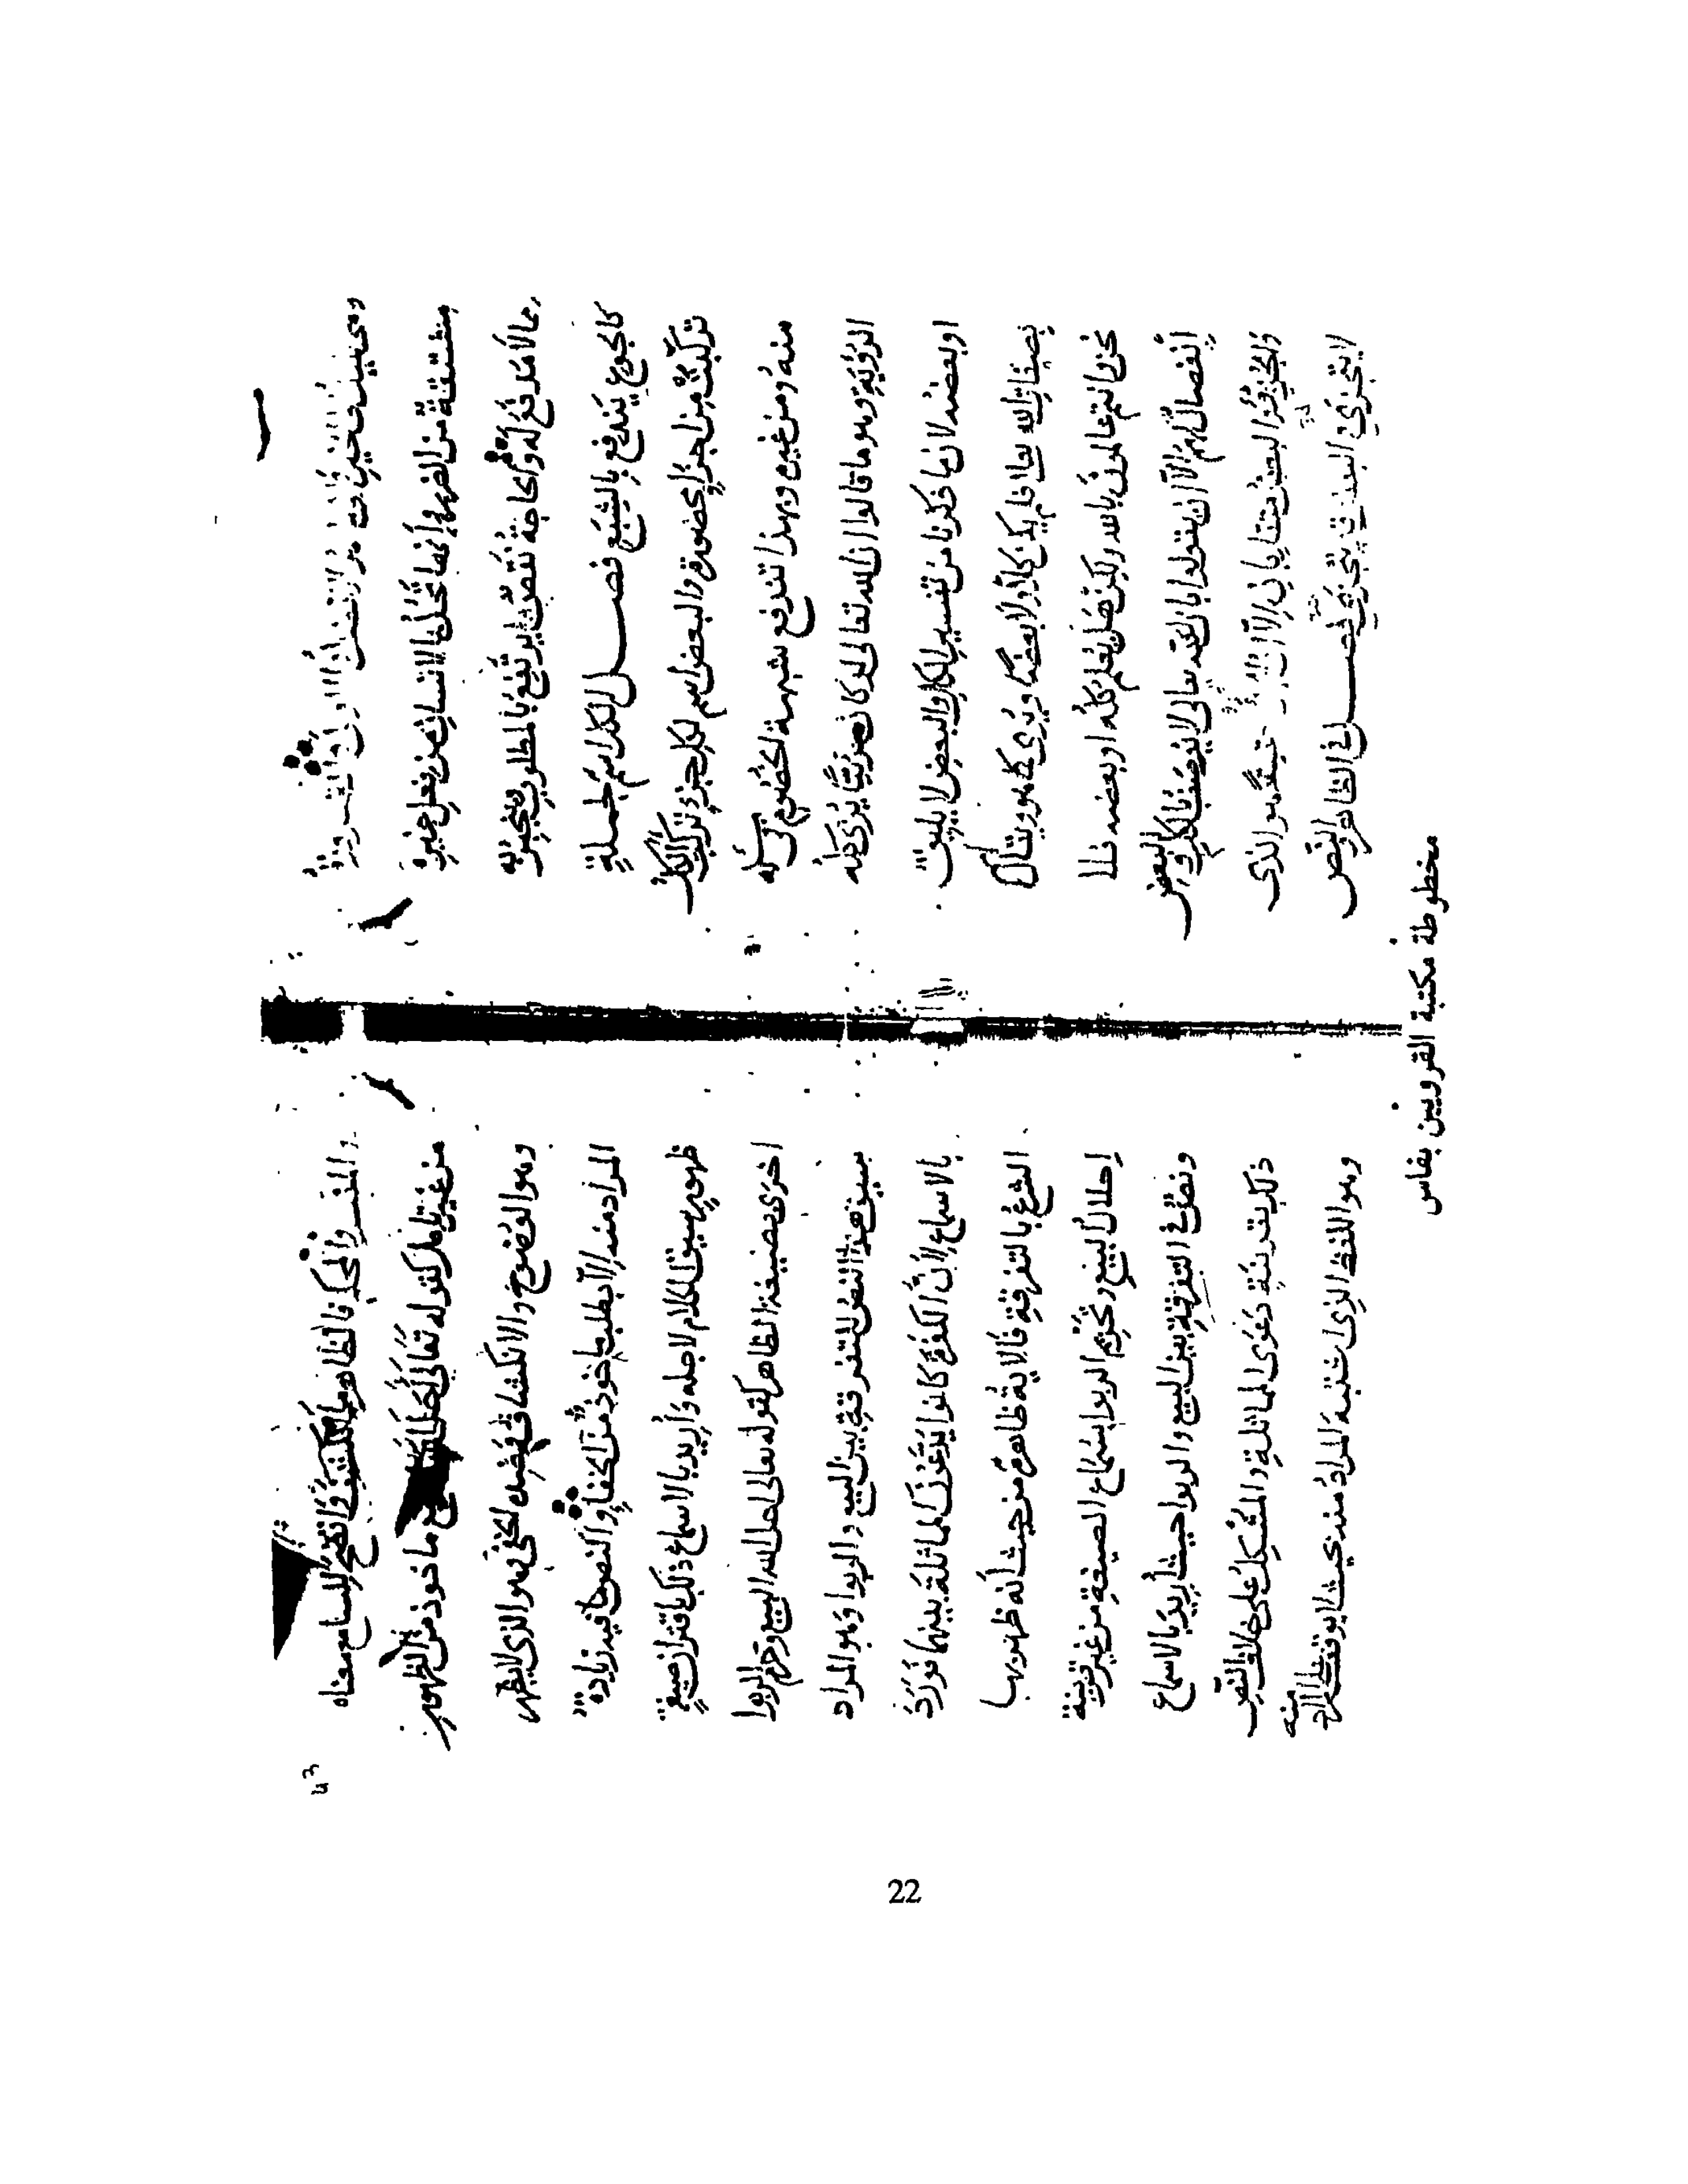 مشتقة من الضرر وإنما تحل بالانسان من فعل غيره
مما لا مدفع له والحاجة نقص يرتفع بالمطلوب وينجبر به
كالجوع يندفع بالشبع فصل الكل اسم لجملة
تركبت من اجزاء محصورة والبعض اسم لكل جزء تركب الكل
منه ومن غيره وبهذا تندفع شبهة الخصوم في مسئلة
الرؤية وهو ما قالوا ان الله تعالى لو كان مرئيا يرى كله
او بعضه لان ما ذكرنا من تفسير الكل والبعض لا يليق
بصفات الله تعالى فلم يكن كلا ولا بعضا ويرى كما هو ويقال
نحن وانتم عالمون بالله ولكن هل يعلم كله او بعضه فلا
انفصال لهم الا ان يقولوا بان الله تعالى لا يوصف بالكل والبعض
والجزء هو البعض الذي
لا يتجزى والبعض يتجزى فصل في الظاهر والنص
والمفسر والمحكم فالظاهر ما انكشف واتضح للسامع معناه
من غير تأمل كقوله تعالى احل الله البيع ماخوذ من الظهور
وهو الوضوح والانكشاف وضده الخفي وهو الذي لا يظهر
المراد منه الا بطلب ماخوذ من الخفاء والنص ما فيه زيادة
ظهور سيق الكلام لاجله واريد بالاسماع ذلك باقتران صيغة
اخرى بصيغة الظاهر كقوله تعالى احل الله البيع وحرم الربوا
سيق هذا النص للتفرقة بين البيع والربوا وهو المراد
بالاسماع لأن الكفرة كانوا يدعون المماثلة بينهما فورد
الشرع بالتفرقة فالآية ظاهرة من حيث أنه ظهر بها
إحلال البيع وتحريم الربوا بسماع الصيغة من غير قرينة
ونص في التفرقة بين البيع والربوا حيث أريد بالاسماع
ذلك بقرينة دعوى المماثلة والمشكل على خلاف النص
وهو اللفظ الذي اشتبه المراد منه بحيث لا يوقف على المراد منه
مخطوطة مكتبة القرويين بفاس
22